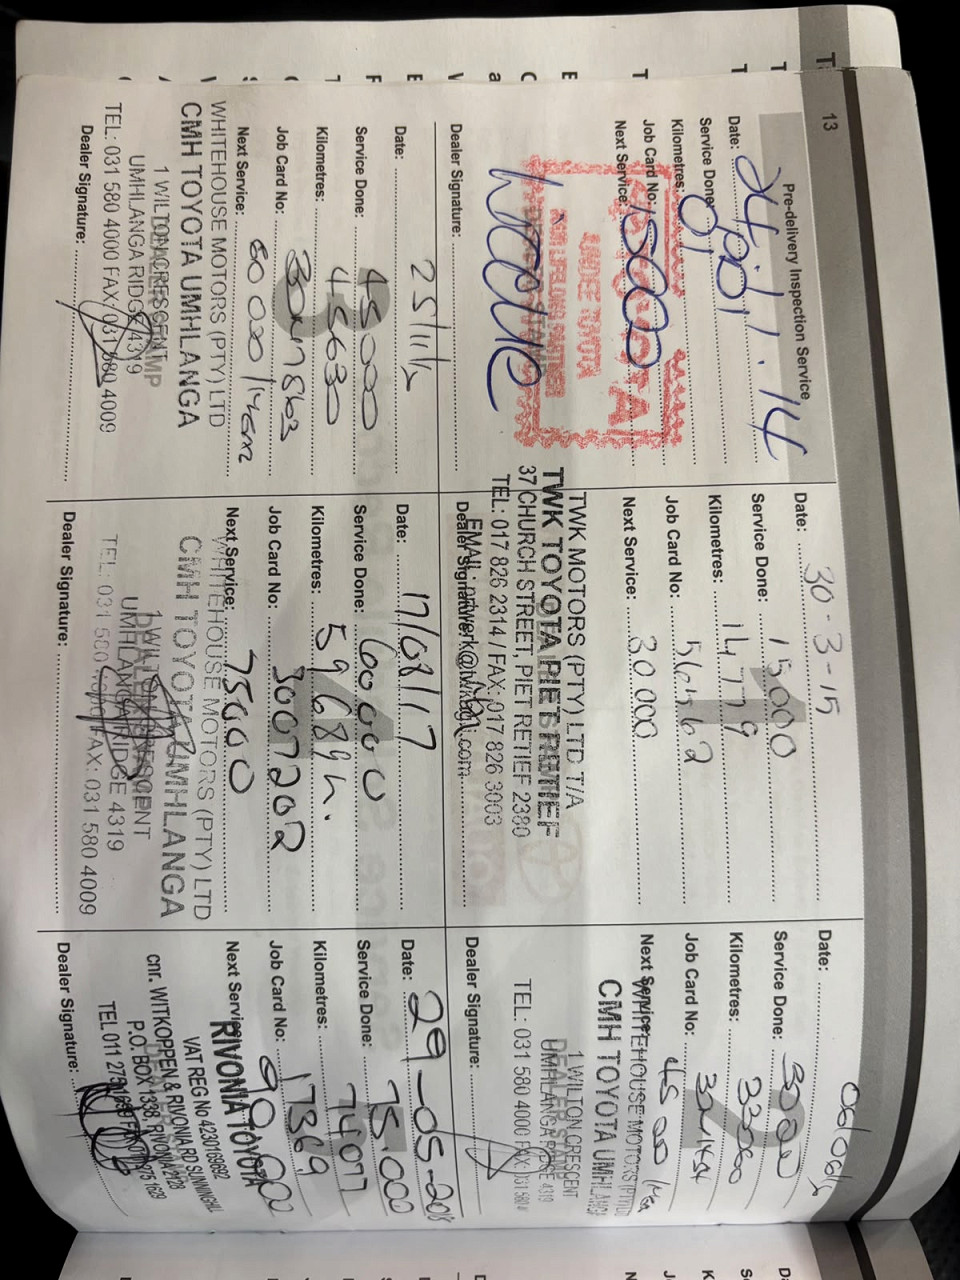 13
Pre-delivery Inspection Service
Date: 24/10/1.14
Service Done: 01
Kilometres:
Job Card No: 15000
Next Service:
Dealer Signature:
Date: 30-3-15
Service Done: 15000
Kilometres: 14779
Job Card No: 564562
Next Service: 30 000
TWK MOTORS (PTY) LTD T/A
TWK TOYOTA PIET RETIEF
37 CHURCH STREET, PIET RETIEF 2380
TEL: 017 826 2314 / FAX: 017 826 3003
Dealer Signature:
Date:
Service Done: 30000
Kilometres:
Job Card No:
Next Service: 45 000
WHITEHOUSE MOTORS (PTY) LTD
CMH TOYOTA UMHLANGA
1 WILTON CRESCENT
UMHLANGA RIDGE 4319
TEL: 031 580 4000 FAX: 031 580
Dealer Signature:
Date:
Service Done: 45000
Kilometres: 45630
Job Card No:
Next Service: 60 000
WHITEHOUSE MOTORS (PTY) LTD
CMH TOYOTA UMHLANGA
1 WILTON CRESCENT
UMHLANGA RIDGE 4319
TEL: 031 580 4000 FAX: 031 580 4009
Dealer Signature:
Date: 17/08/17
Service Done: 60000
Kilometres: 59689
Job Card No: 3007202
Next Service: 75000
WHITEHOUSE MOTORS (PTY) LTD
CMH TOYOTA UMHLANGA
1 WILTON CRESCENT
UMHLANGA RIDGE 4319
TEL: 031 580 4000 FAX: 031 580 4009
Dealer Signature:
Date: 29-05-2018
Service Done: 75.000
Kilometres: 74077
Job Card No: 17369
Next Service: 90 000
RIVONIA TOYOTA
VAT REG No 4230169692
cnr. WITKOPPEN & RIVONIA RD SUNNINGHILL
P.O. BOX 1338, RIVONIA 2128
Dealer Signature: